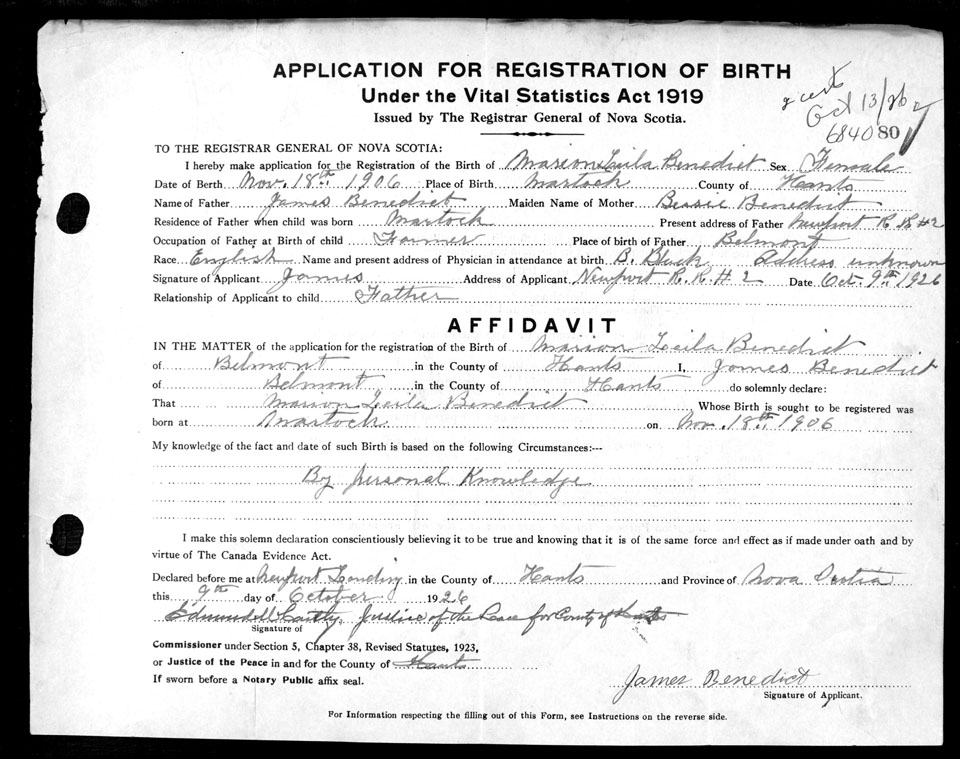 APPLICATION FOR REGISTRATION OF BIRTH
Under the Vital Statistics Act 1919
Issued by The Registrar General of Nova Scotia.
Oct 13/26
684080
TO THE REGISTRAR GENERAL OF NOVA SCOTIA:
I hereby make application for the Registration of the Birth of Marion Leila Benedict Sex Female
Date of Berth Nov. 18th 1906 Place of Birth Martock County of Hants
Name of Father James Benedict Maiden Name of Mother Bessie Benedict
Residence of Father when child was born Martock Present address of Father Newport R.R.#2
Occupation of Father at Birth of child Farmer Place of birth of Father Belmont
Race English Name and present address of Physician in attendance at birth B. Black Address unknown
Signature of Applicant James Address of Applicant Newport R.R.#2 Date Oct. 9th 1926
Relationship of Applicant to child Father
AFFIDAVIT
IN THE MATTER of the application for the registration of the Birth of Marion Leila Benedict
of Belmont in the County of Hants I, James Benedict
of Belmont in the County of Hants do solemnly declare:
That Marion Leila Benedict Whose Birth is sought to be registered was
born at Martock on Nov. 18th 1906
My knowledge of the fact and date of such Birth is based on the following Circumstances:---
By personal Knowledge
I make this solemn declaration conscientiously believing it to be true and knowing that it is of the same force and effect as if made under oath and by
virtue of The Canada Evidence Act.
Declared before me at Newport Landing in the County of Hants and Province of Nova Scotia
this 9th day of October 1926
Justice of the Peace for County of Hants
Signature of
Commissioner under Section 5, Chapter 38, Revised Statutes, 1923,
or Justice of the Peace in and for the County of Hants
If sworn before a Notary Public affix seal.
James Benedict
Signature of Applicant.
For Information respecting the filling out of this Form, see Instructions on the reverse side.